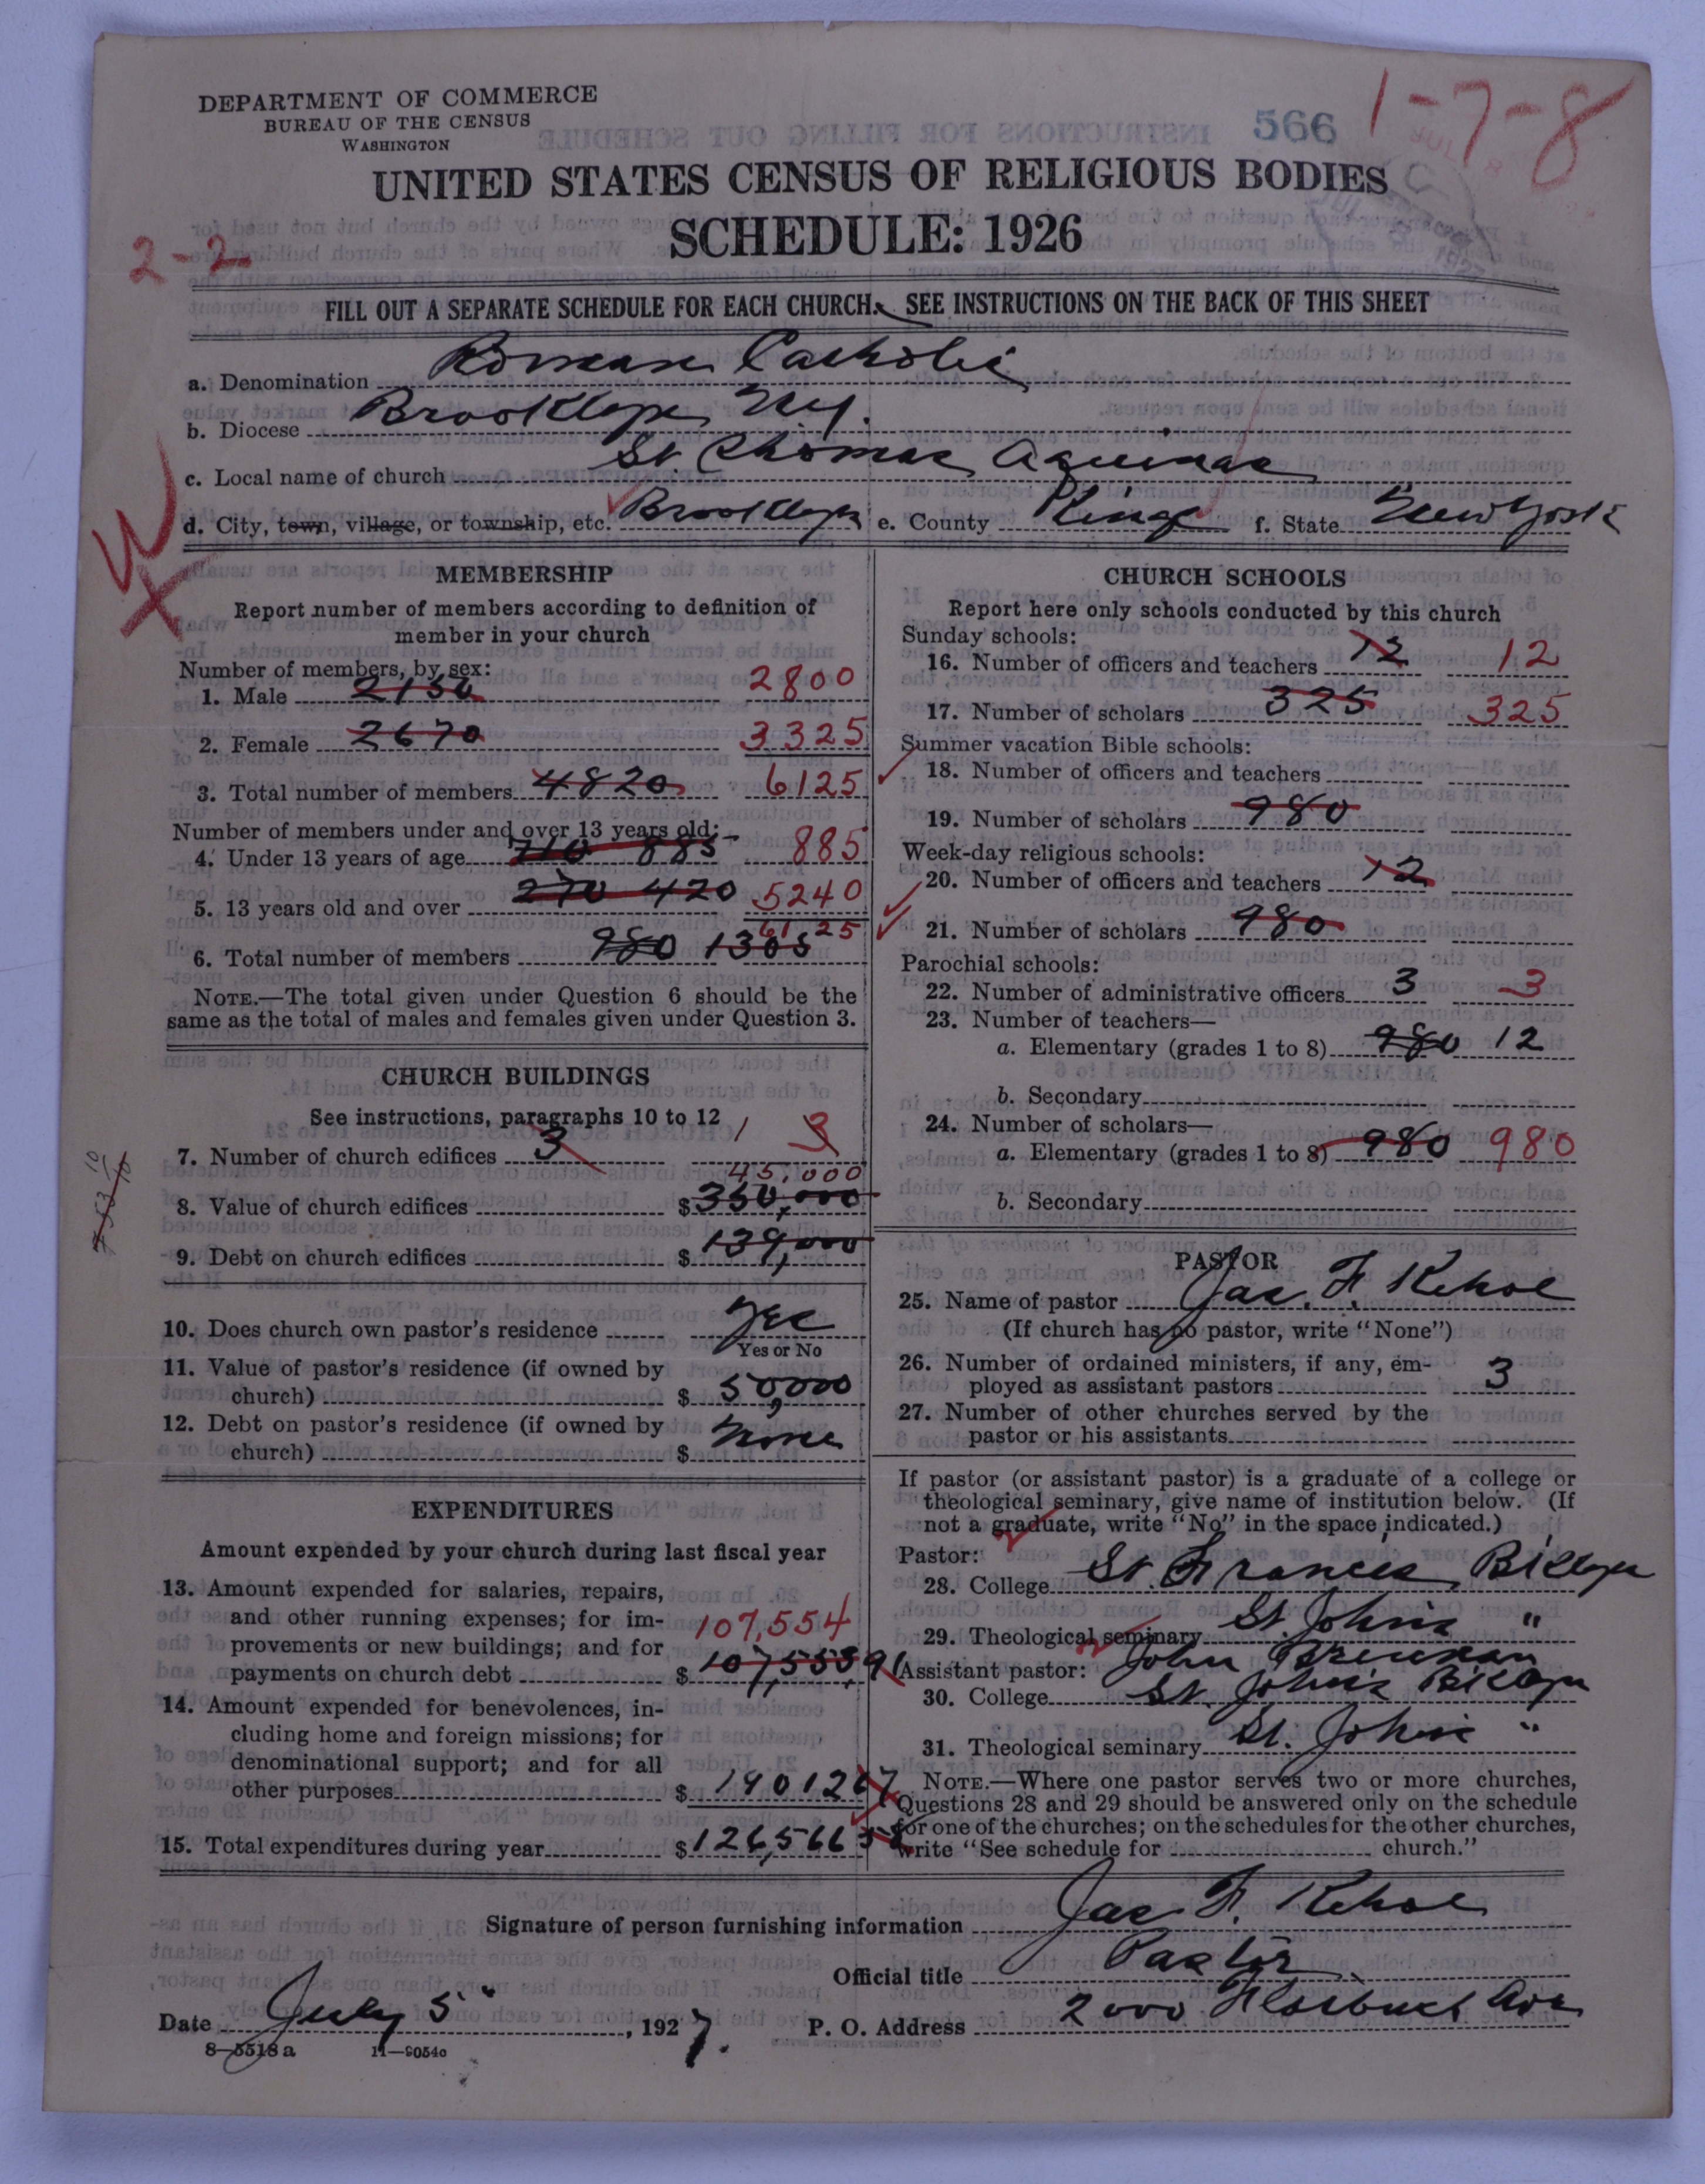 DEPARTMENT OF COMMERCE
BUREAU OF THE CENSUS
WASHINGTON
566
1-7-8
UNITED STATES CENSUS OF RELIGIOUS BODIES
SCHEDULE: 1926
2-2
FILL OUT A SEPARATE SCHEDULE FOR EACH CHURCH. SEE INSTRUCTIONS ON THE BACK OF THIS SHEET
a. Denomination Roman Catholic
b. Diocese Brooklyn N.Y.
c. Local name of church St. Thomas Aquinas
d. City, town, village, or township, etc. Brooklyn e. County Kings f. State New York
MEMBERSHIP
Report number of members according to definition of
member in your church
Number of members, by sex:
1. Male 2150 2800
2. Female 2670 3325
3. Total number of members 4820 6125
Number of members under and over 13 years old:
4. Under 13 years of age 710 885 885
5. 13 years old and over 270 420 5240
6. Total number of members 980 1305 6125
NOTE.—The total given under Question 6 should be the
same as the total of males and females given under Question 3.
CHURCH BUILDINGS
See instructions, paragraphs 10 to 12
7. Number of church edifices 3 1 3
45,000
8. Value of church edifices $350,000
9. Debt on church edifices $139,000
10. Does church own pastor's residence Yes
Yes or No
11. Value of pastor's residence (if owned by
church) $ 50,000
12. Debt on pastor's residence (if owned by
church) $ None
EXPENDITURES
Amount expended by your church during last fiscal year
13. Amount expended for salaries, repairs,
and other running expenses; for im-
provements or new buildings; and for
107,554
payments on church debt $ 107,553.91
14. Amount expended for benevolences, in-
cluding home and foreign missions; for
denominational support; and for all
other purposes $ 19012 67
15. Total expenditures during year $126,566 58
CHURCH SCHOOLS
Report here only schools conducted by this church
Sunday schools:
16. Number of officers and teachers 12 12
17. Number of scholars 325 325
Summer vacation Bible schools:
18. Number of officers and teachers
19. Number of scholars 980
Week-day religious schools:
20. Number of officers and teachers 12
21. Number of scholars 980
Parochial schools:
22. Number of administrative officers 3 3
23. Number of teachers—
a. Elementary (grades 1 to 8) 980 12
b. Secondary
24. Number of scholars—
a. Elementary (grades 1 to 8) 980 980
b. Secondary
PASTOR
25. Name of pastor Jas. F. Kehoe
(If church has no pastor, write "None")
26. Number of ordained ministers, if any, em-
ployed as assistant pastors 3
27. Number of other churches served by the
pastor or his assistants
If pastor (or assistant pastor) is a graduate of a college or
theological seminary, give name of institution below. (If
not a graduate, write "No" in the space indicated.)
Pastor:
28. College St. Francis Bklyn
29. Theological seminary St. Johns "
Assistant pastor: John Brennan
30. College St. Johns Bklyn
31. Theological seminary St. Johns "
NOTE.—Where one pastor serves two or more churches,
Questions 28 and 29 should be answered only on the schedule
for one of the churches; on the schedules for the other churches,
write "See schedule for church."
Signature of person furnishing information Jas F. Kehoe
Official title Pastor
Date July 5", 1927. P. O. Address 2000 Flatbush Ave
8—5518a 11—9054c